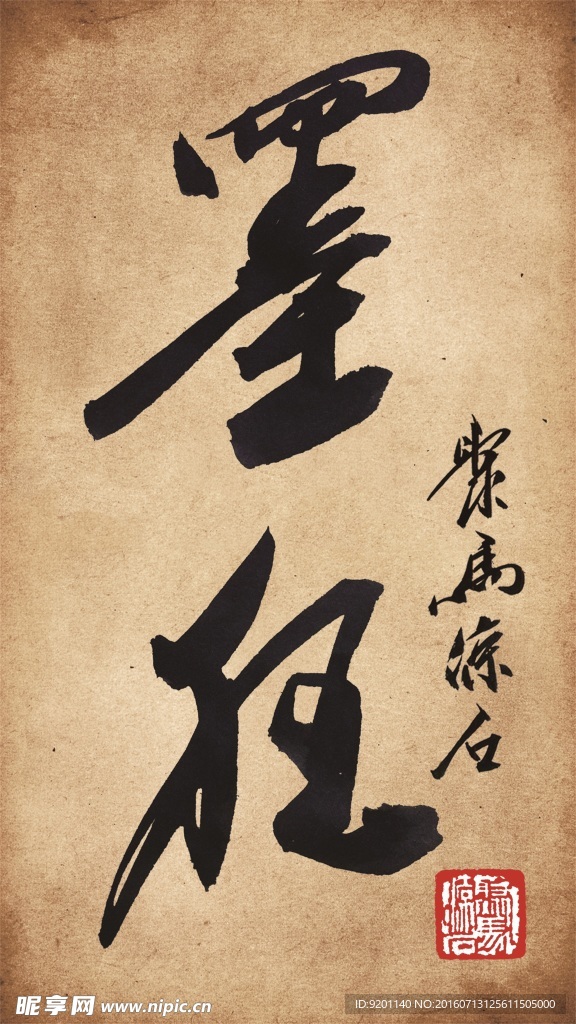 墨狂
聚馬涼石
昵享网 www.nipic.cn
ID:9201140 NO:20160713125611505000